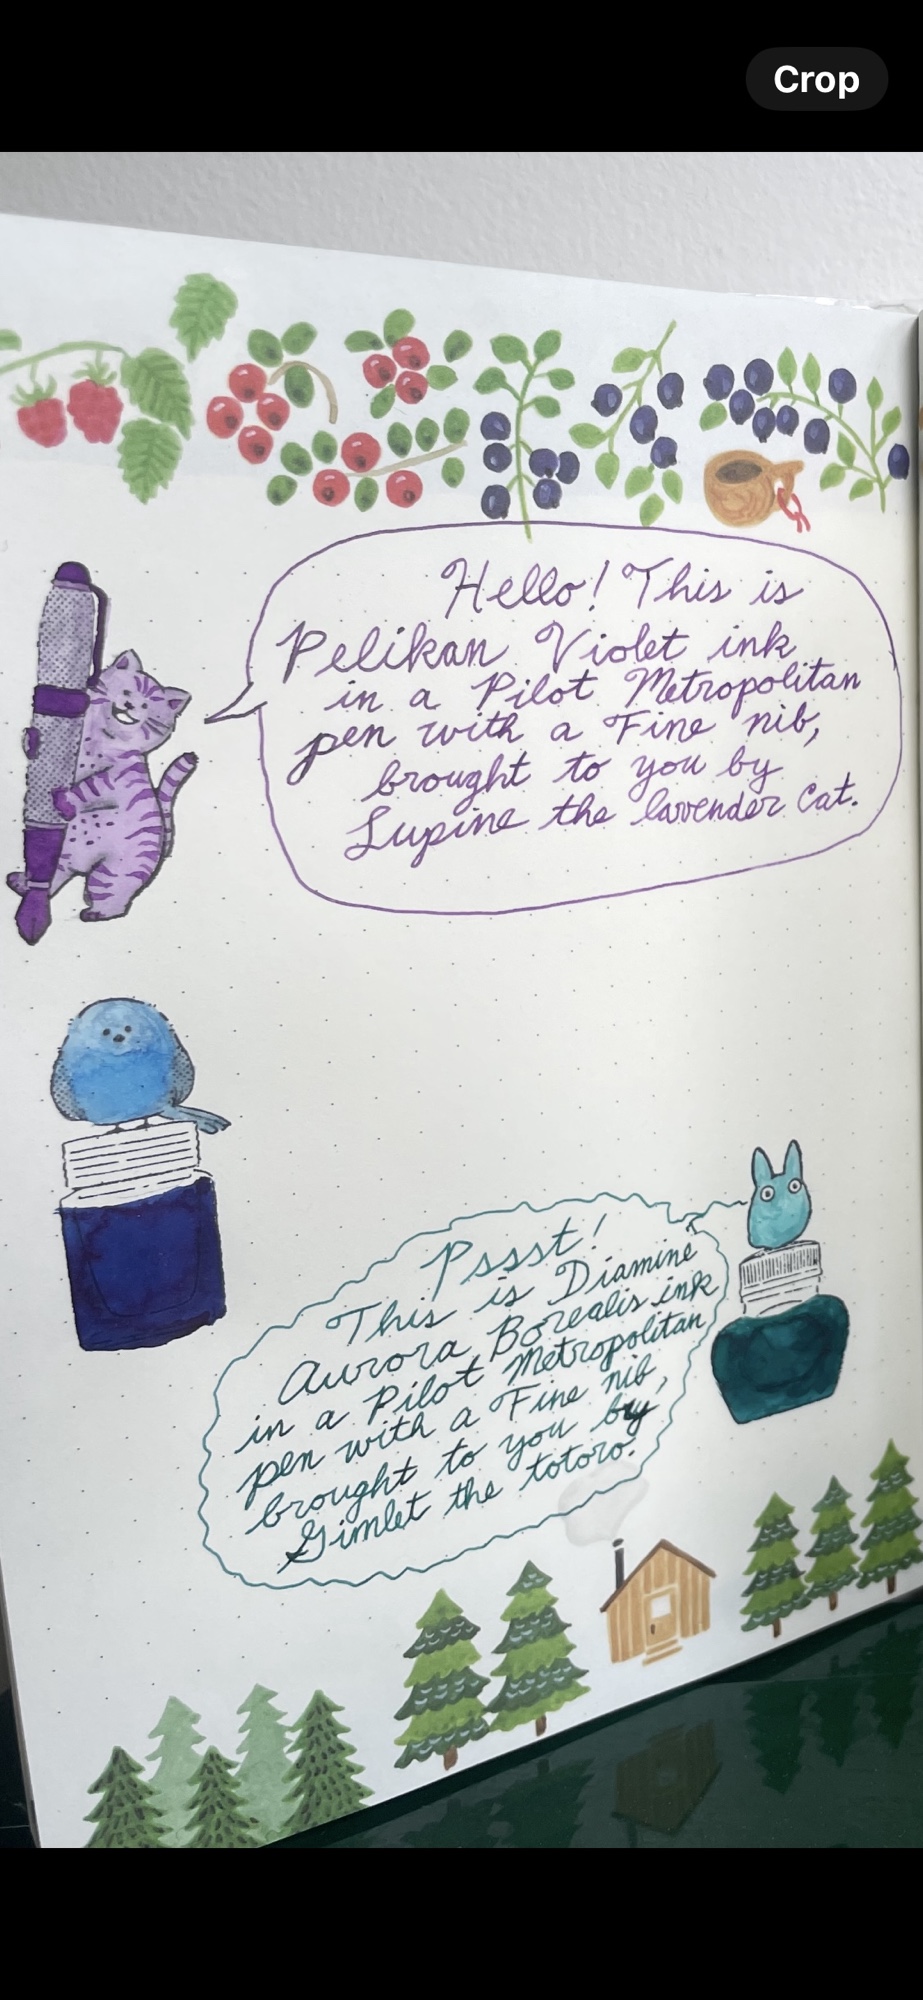 Crop
Hello! This is
Pelikan Violet ink
in a Pilot Metropolitan
pen with a Fine nib,
brought to you by
Lupine the lavender cat.
Pssst!
This is Diamine
Aurora Borealis ink
in a Pilot Metropolitan
pen with a Fine nib,
brought to you by
Gimlet the totoro.